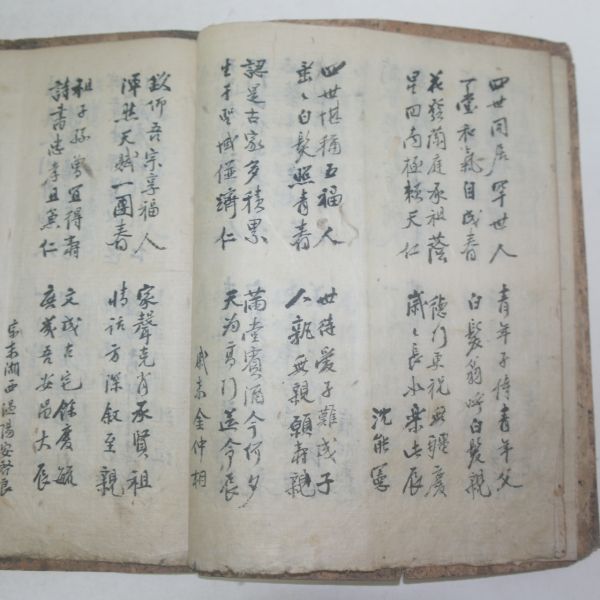 四世同居罕世人 青年子侍青年父
堂和氣自成春 白髮翁呼白髮親
花發蘭庭承祖蔭 德门更祝無疆慶
星回南極賴天仁 歲〻長 樂此辰
沈能憲
四世堪稱五福人 世 愛子難 子
垂〻白髮照青春 人 親無親願壽親
認是古家多積累 滿堂賓酒今何夕
生于聖域 濟仁 天为高门送令辰
戚末金仲相
欽仰吾宗享福人 家聲克肖承賢祖
渾然天賦一團春 情話方深叙至親
祖子孫曾宜得壽 文成古宅餘慶毓
詩書忠孝且兼仁 庶幾吾安昌大辰
宗末湖西溫陽安啓良